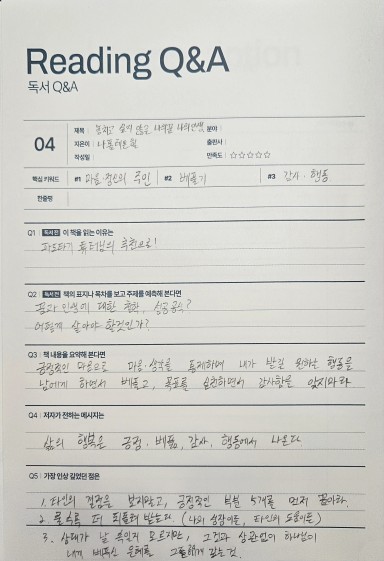 Reading Q&A
독서 Q&A
04
제목 놓치고 싶지 않은 나의꿈 나의인생 분야
지은이 나폴레온 힐 출판사
작성일 만족도 ☆☆☆☆☆
핵심 키워드 #1 마음·정신의 주인 #2 베풀기 #3 감사·행동
한줄평
Q1 독서 전 이 책을 읽는 이유는
튜터님의 추천으로!
Q2 독서 전 책의 표지나 목차를 보고 주제를 예측해 본다면
꿈과 인생에 대한 철학, 성공공식?
어떻게 살아야 할것인가?
Q3 책 내용을 요약해 본다면
긍정적인 마음으로 마음·생각을 통제하며 내가 받길 원하는 행동을
남에게 하면서 베풀고, 목표를 실천하면서 감사함을 잊지마라
Q4 저자가 전하는 메시지는
삶의 행복은 긍정·베풂, 감사, 행동에서 나온다.
Q5 가장 인상 깊었던 점은
1. 타인의 결점을 보지말고, 긍정적인 부분 5개를 먼저 꼽아라.
2. 줄수록 더 되돌려 받는다. (나의 성장이든, 타인의 도움이든)
3. 상대가 날 속인지 모르지만, 그것과 상관없이 하나님이
내게 베푸신 은혜를 그들에게 갚는것.